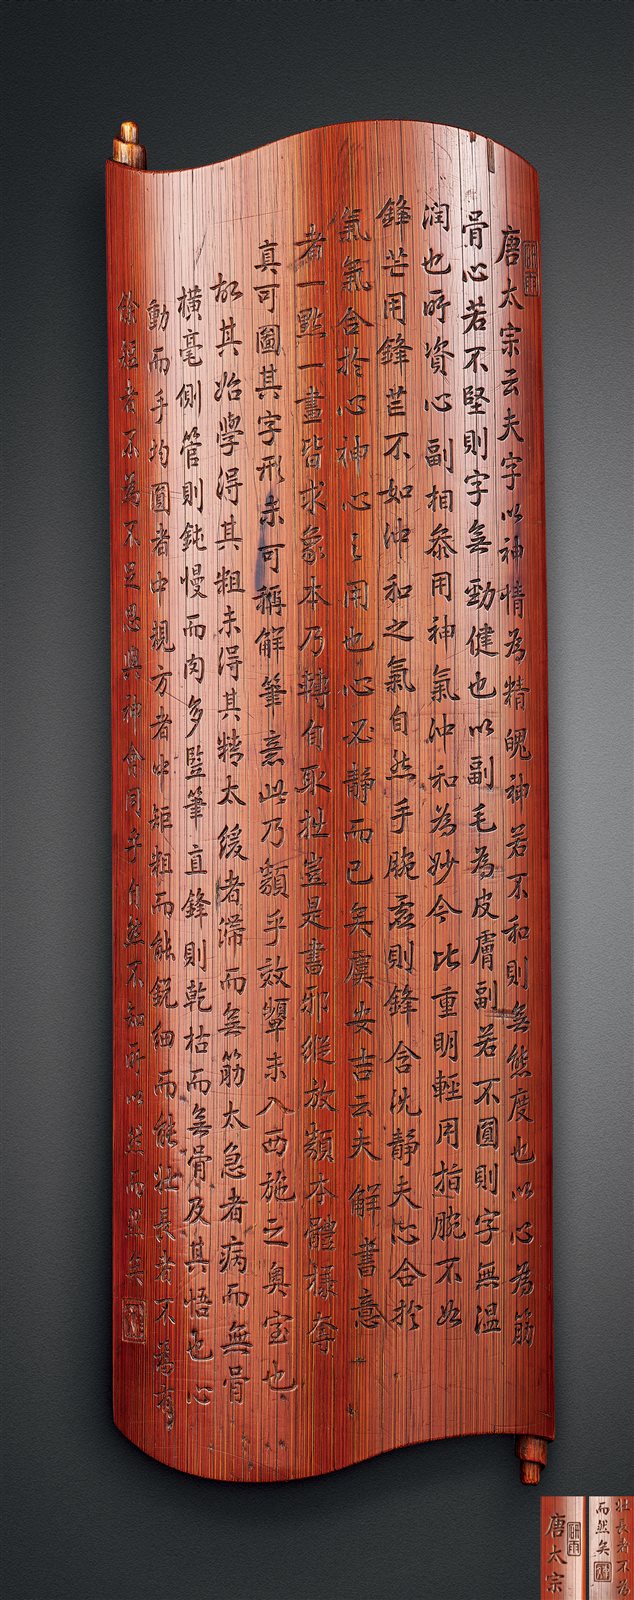 唐太宗云夫字以神情為精魄神若不和則無態度也以心為筋
骨心若不堅則字無勁健也以副毛為皮膚副若不圓則字無温
润也所資心副相參用神氣冲和為妙今比重明輕用指腕不如
鋒芒用鋒芒不如冲和之氣自然手腕虛則鋒含沈靜夫心合於
氣氣合於心神心之用也心必靜而已矣虞安吉云夫解書意
者一點一畫皆求象本乃轉自取拙豈是書邪縱放類本體樣奪
真可圖其字形未可稱解筆意此乃類乎效顰未入西施之奥室也
故其始學得其粗未得其精太緩者滞而無筋太急者病而無骨
橫毫側管則鈍慢而肉多豎筆直鋒則乾枯而無骨及其悟也心
動而手均圓者中規方者中矩粗而能鋭細而能壯長者不為有
餘短者不為不足思與神會同乎自然不知所以然而然矣
唐太宗
壮長者不為
而然矣